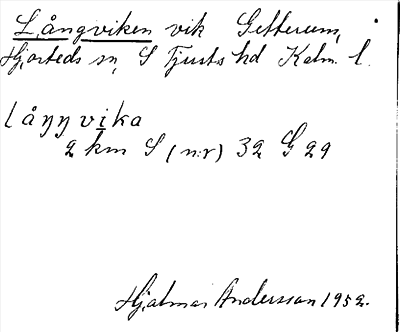 Långviken vik Getterum,
Hjorteds sn, S Tjusts hd Kalm. l.
låŋŋvika
2 km S (n:r) 32 G 29
Hjalmar Andersson 1952.